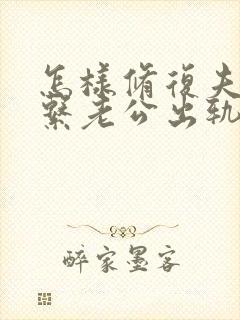 怎樣脩復夫
繫老公出軌
醉家墨客